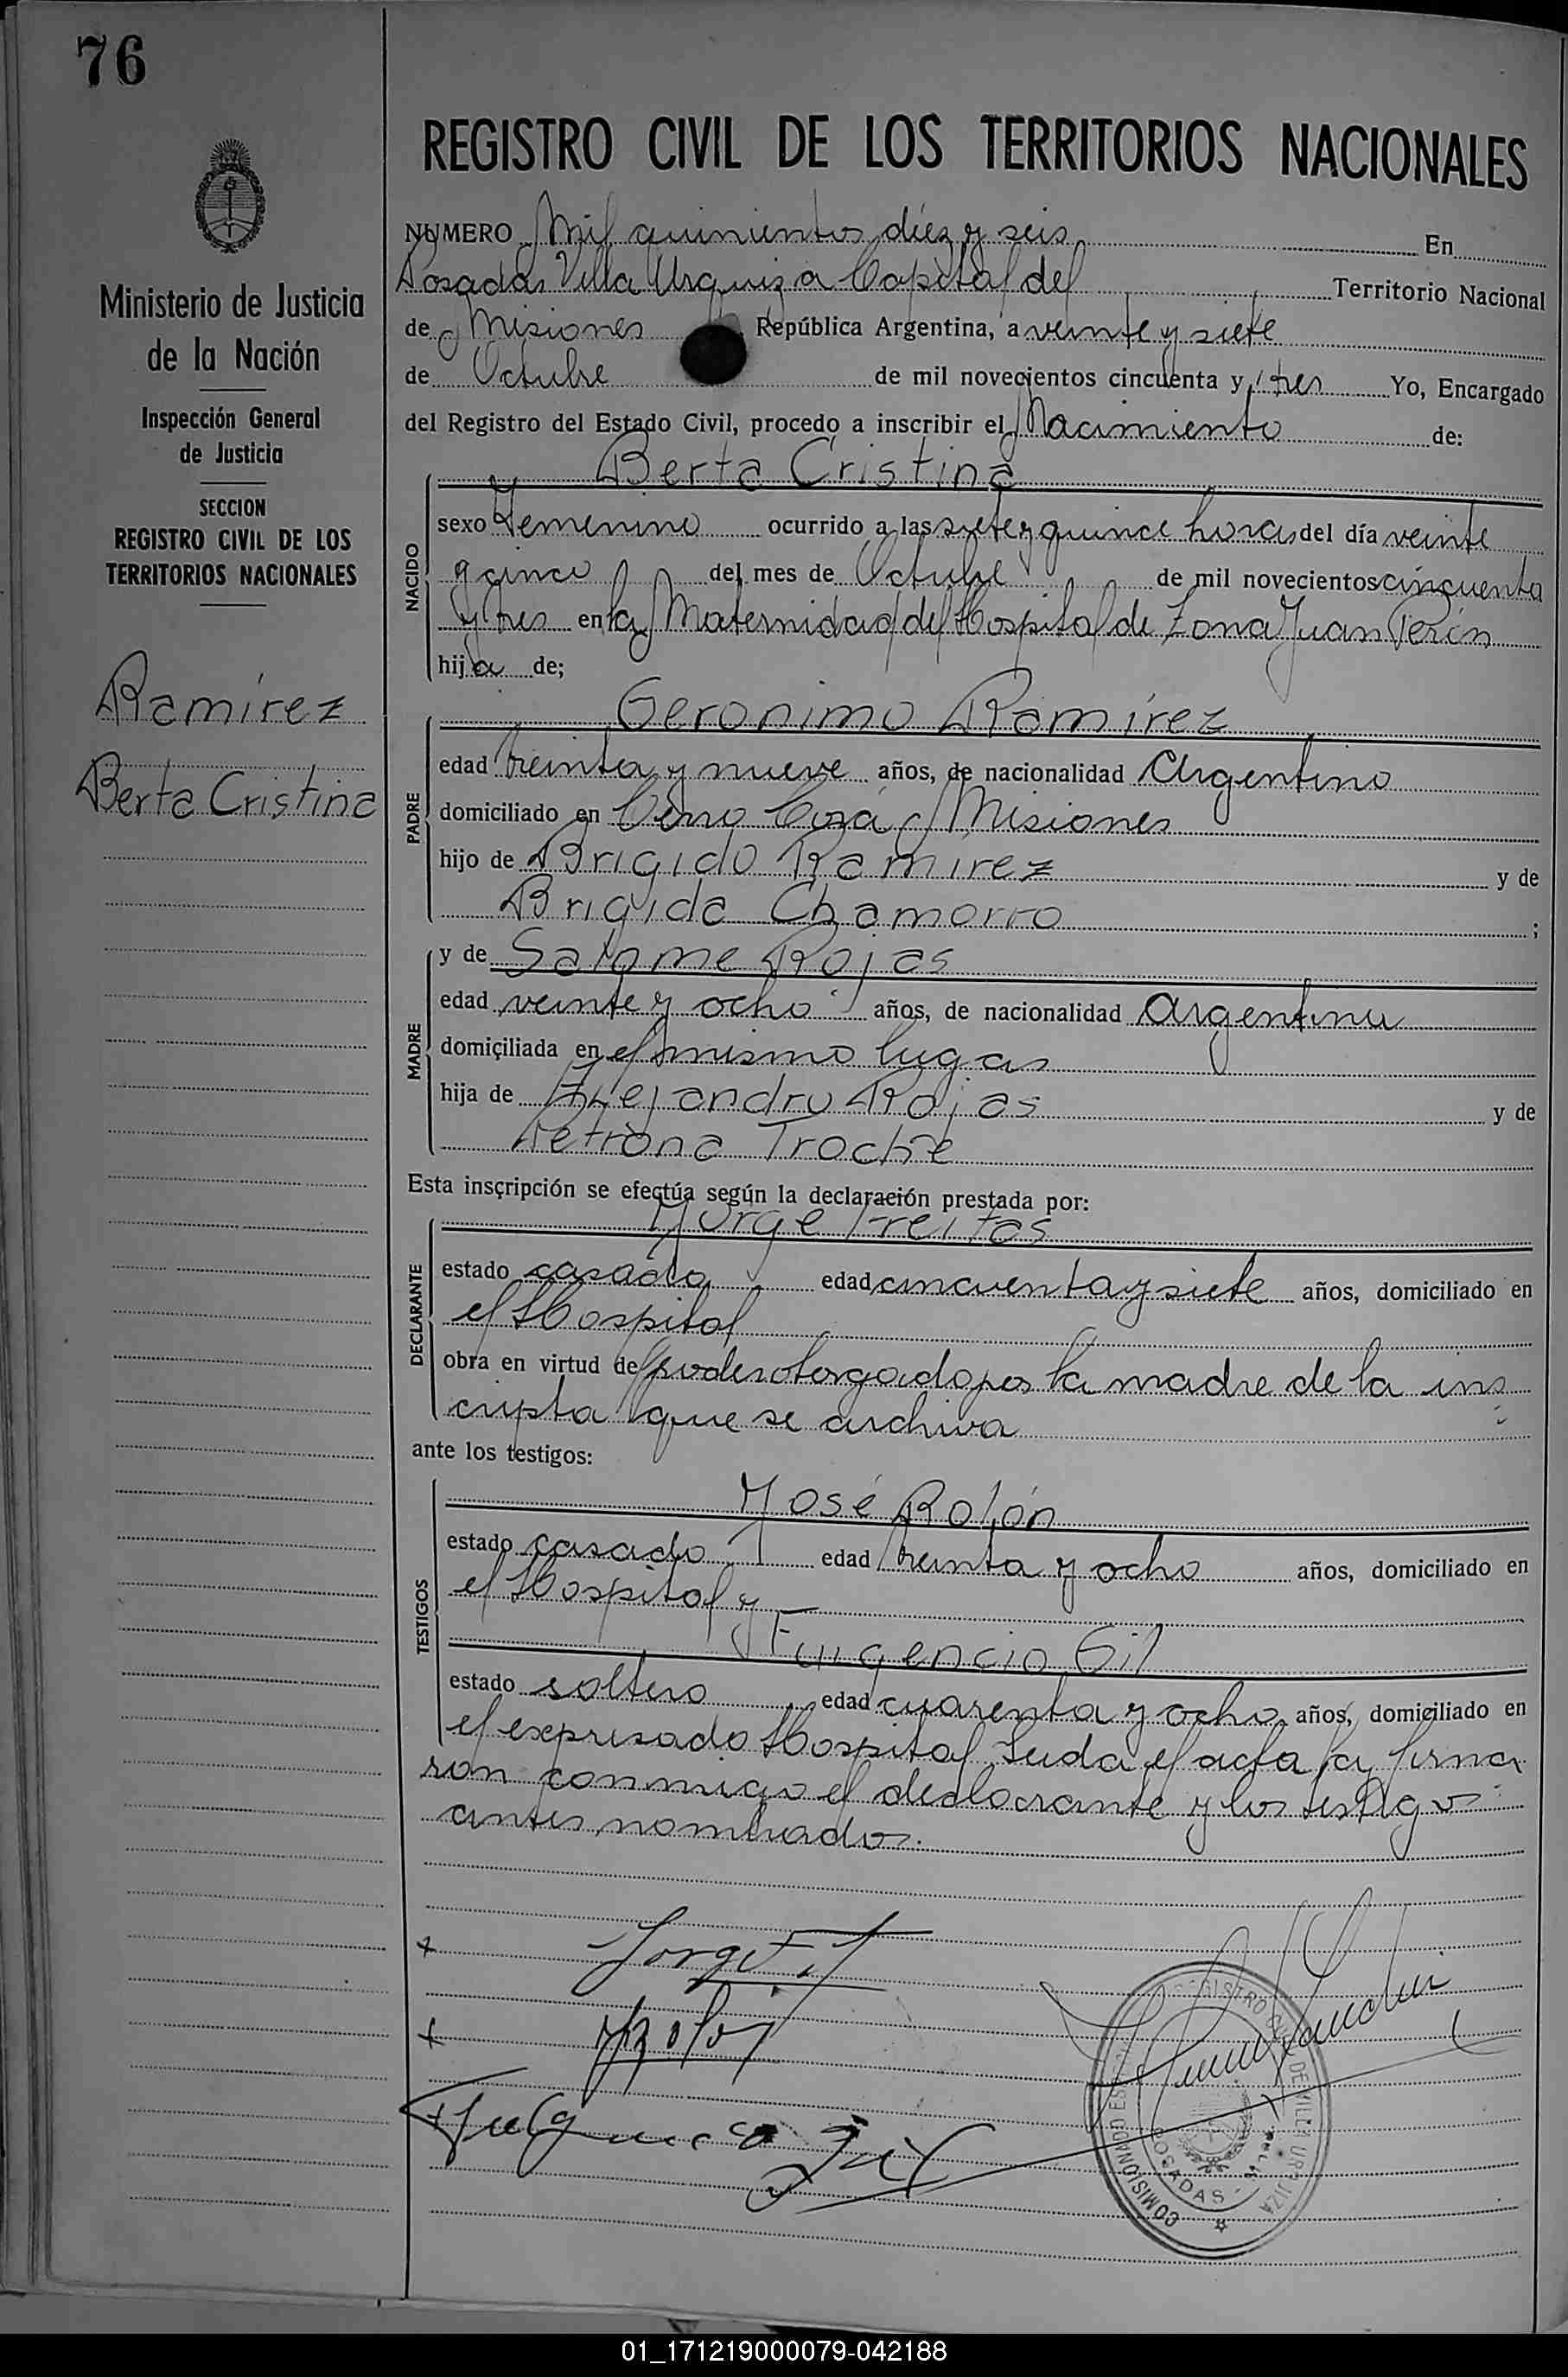 76
REGISTRO CIVIL DE LOS TERRITORIOS NACIONALES
Ministerio de Justicia
de la Nación
Inspección General
de Justicia
SECCION
REGISTRO CIVIL DE LOS
TERRITORIOS NACIONALES
Ramírez
Berta Cristina
NUMERO Mil quinientos diez y seis En
Posadas Villa Urquiza Capital del Territorio Nacional
de Misiones República Argentina, a veinte y siete
de Octubre de mil novecientos cincuenta y tres Yo, Encargado
del Registro del Estado Civil, procedo a inscribir el Nacimiento de:
NACIDO
Berta Cristina
sexo Femenino ocurrido a las siete y quince horas del día veinte
y cinco del mes de Octubre de mil novecientos cincuenta
y tres en la Maternidad del Hospital de Zona Juan Perón
hija de;
PADRE
Geronimo Ramírez
edad treinta y nueve años, de nacionalidad Argentino
domiciliado en Cerro Corá Misiones
hijo de Brigido Ramírez y de
Brigida Chamorro ;
MADRE
y de Salome Rojas
edad veinte y ocho años, de nacionalidad Argentina
domiciliada en el mismo lugar
hija de Alejandro Rojas y de
Petrona Troche
Esta inscripción se efectúa según la declaración prestada por:
DECLARANTE
Jorge Freitas
estado casado edad cincuenta y siete años, domiciliado en
el Hospital
obra en virtud de poder otorgado por la madre de la ins
cripta que se archiva
ante los testigos:
TESTIGOS
José Rolón
estado casado edad treinta y ocho años, domiciliado en
el Hospital y
Fulgencio Gil
estado soltero edad cuarenta y ocho años, domiciliado en
el expresado Hospital. Leida el acta la firma
ron conmigo el declarante y los testigos
antes nombrados.
Jorge F.
JRolón
Fulgencio Gil
REGISTRO CIVIL DE VILLA URQUIZA
POSADAS
01_171219000079-042188